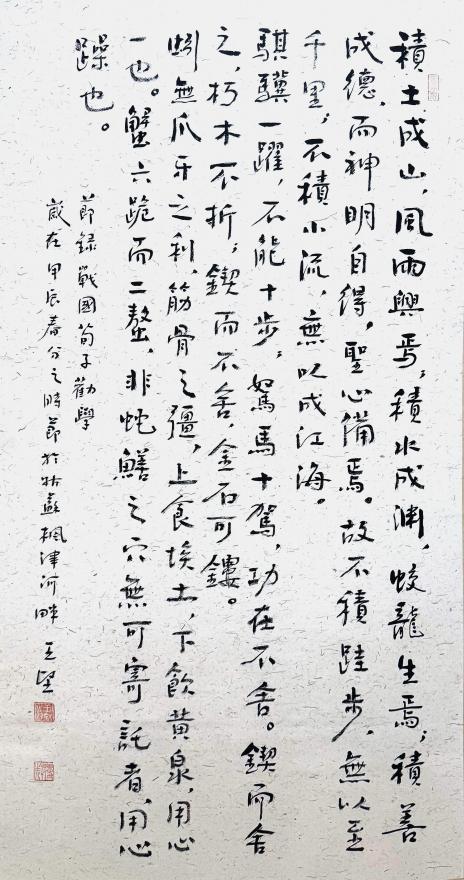 積土成山,風雨興焉;積水成淵,蛟龍生焉;積善
成德,而神明自得,聖心備焉。故不積跬步,無以至
千里;不積小流,無以成江海。
騏驥一躍,不能十步;駑馬十駕,功在不舍。鍥而舍
之,朽木不折;鍥而不舍,金石可鏤。
蚓無爪牙之利,筋骨之彊,上食埃土,下飲黃泉,用心
一也。蟹六跪而二螯,非蛇鱔之穴無可寄託者,用心
躁也。
節錄戰國荀子勸學
歲在甲辰春分之時節於姑蘇楓津河畔 王